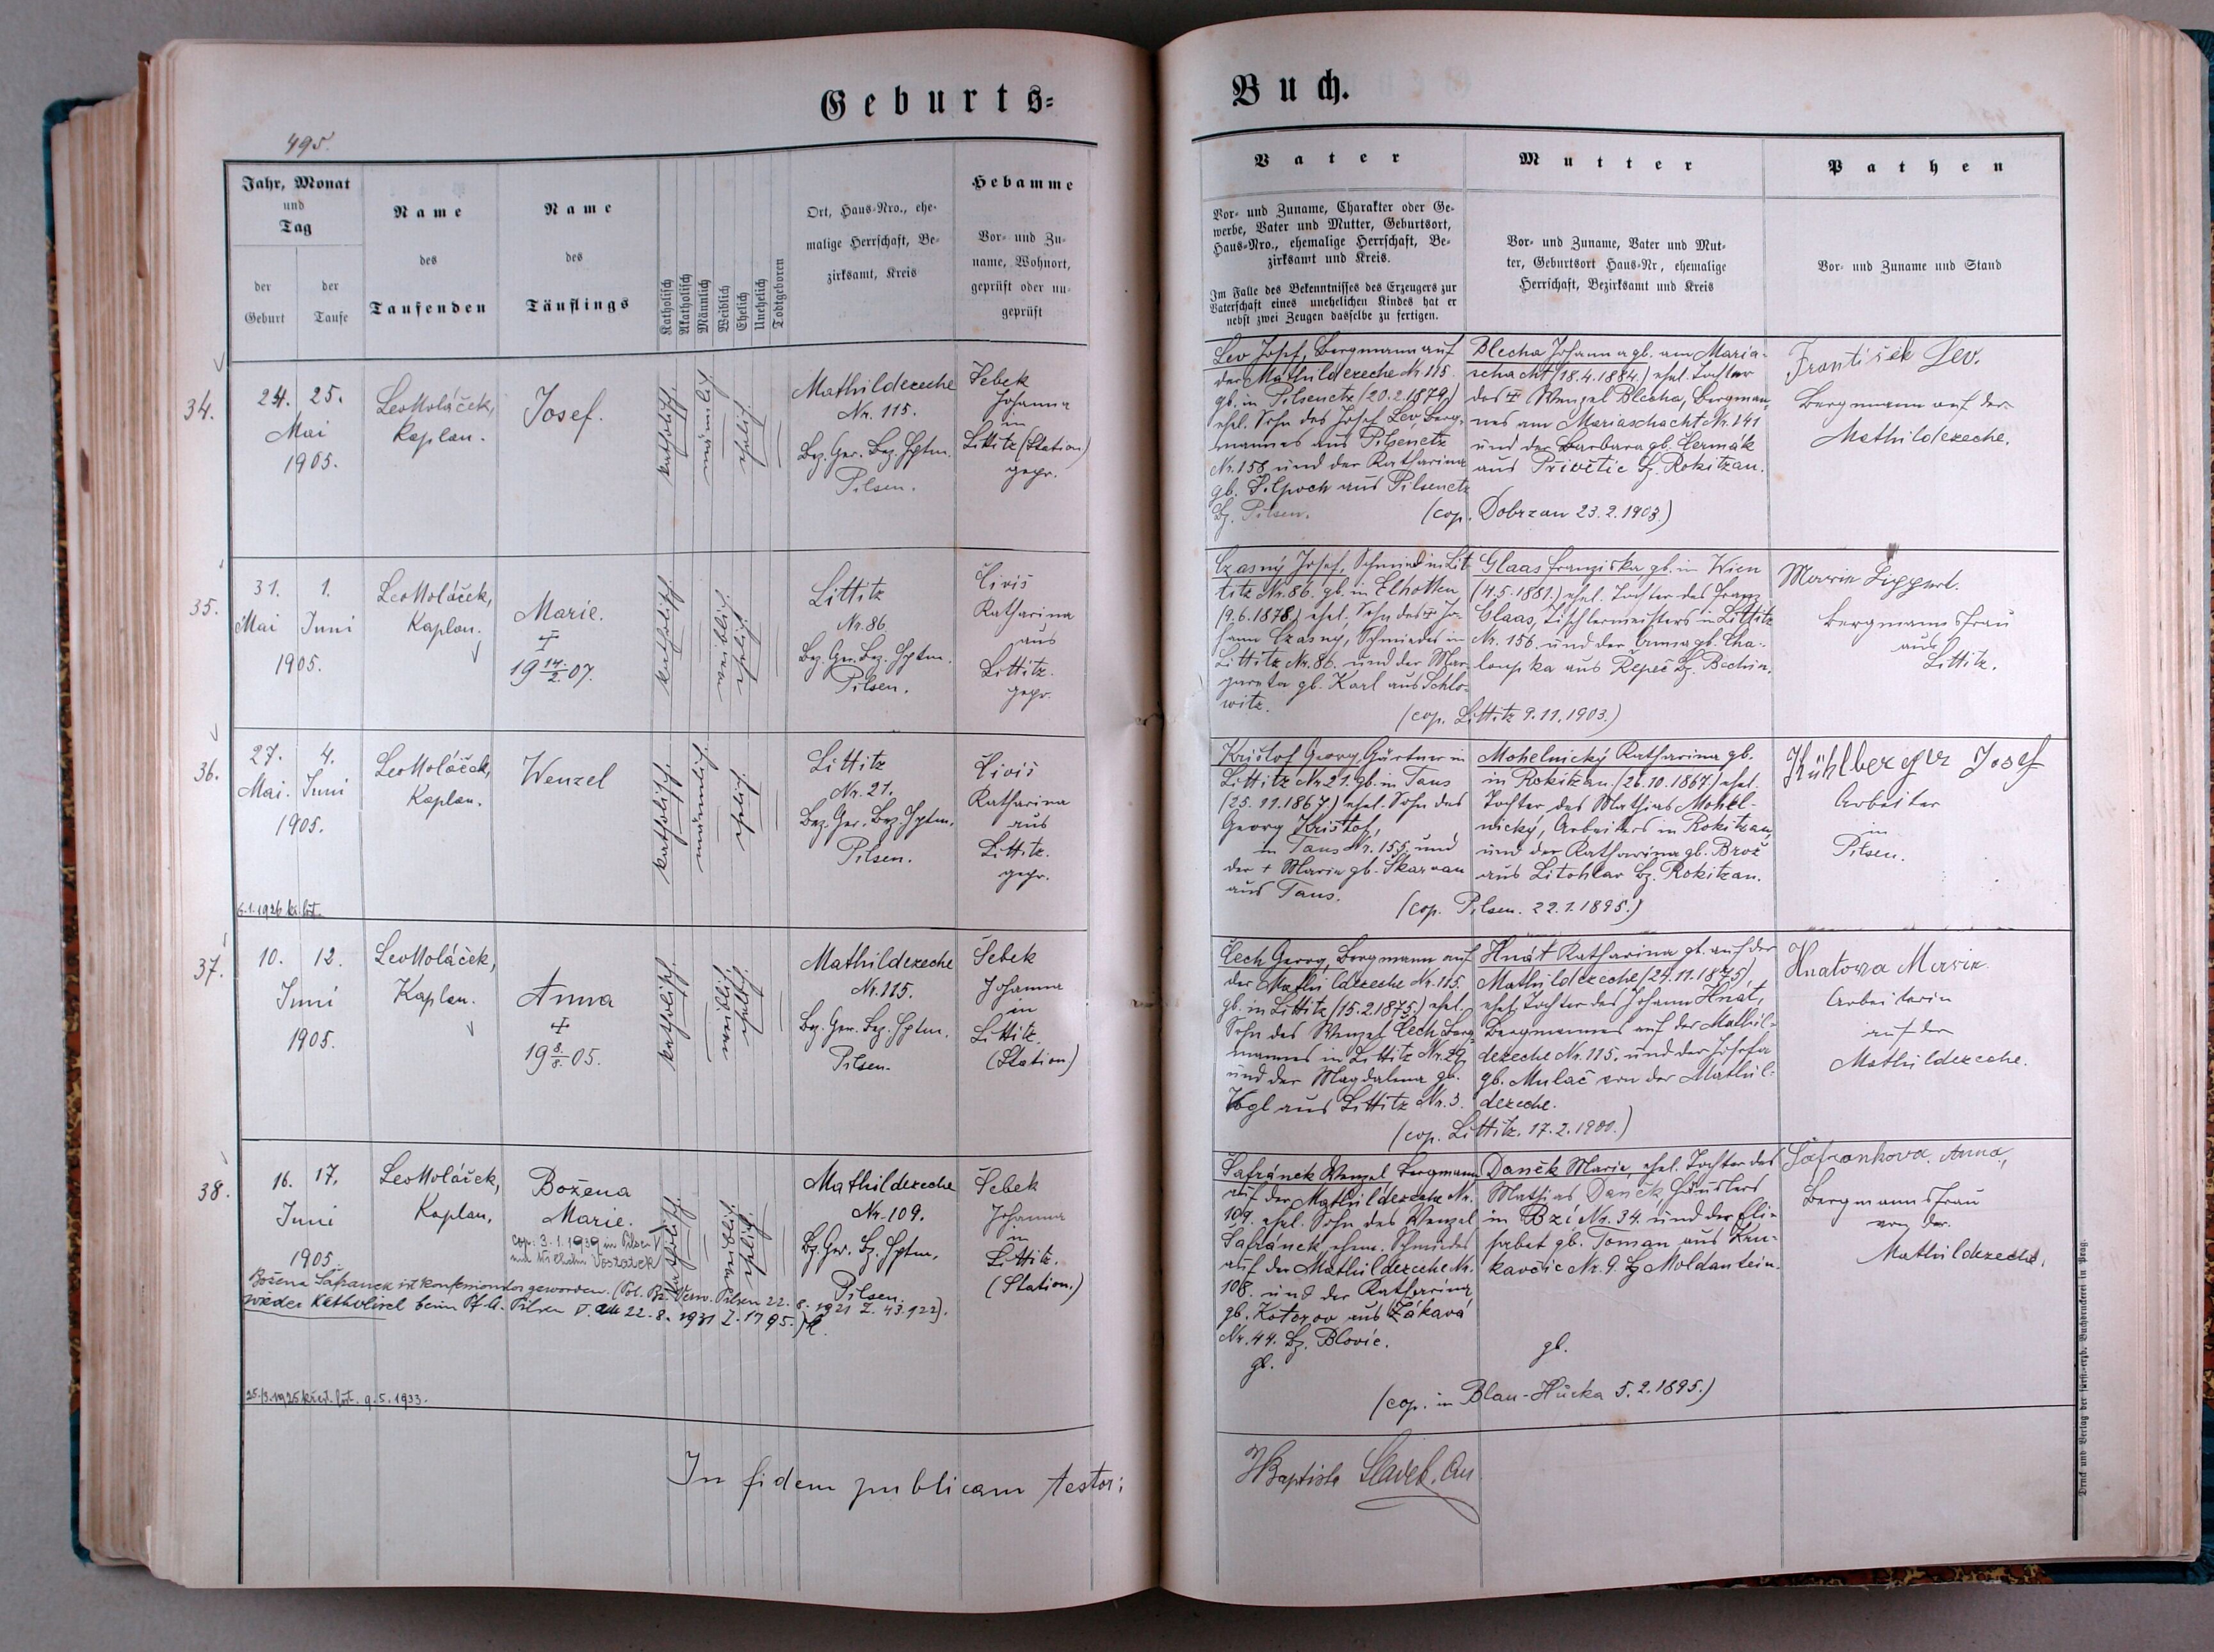 Geburts=
Buch.
495.
Jahr, Monat
und
Tag
der
Geburt
der
Taufe
Name
des
Taufenden
Name
des
Täuflings
Katholisch
Akatholisch
Männlich
Weiblich
Ehelich
Unehelich
Todtgeboren
Ort, Haus-Nro., ehe-
malige Herrschaft, Be-
zirksamt, Kreis
Hebamme
Vor- und Zu-
name, Wohnort,
geprüft oder un-
geprüft
Vater
Vor- und Zuname, Charakter oder Ge-
werbe, Vater und Mutter, Geburtsort,
Haus-Nro., ehemalige Herrschaft, Be-
zirksamt und Kreis.
Im Falle des Bekenntnisses des Erzeugers zur
Vaterschaft eines unehelichen Kindes hat er
nebst zwei Zeugen dasselbe zu fertigen.
Mutter
Vor- und Zuname, Vater und Mut-
ter, Geburtsort Haus-Nr, ehemalige
Herrschaft, Bezirksamt und Kreis
Pathen
Vor- und Zuname und Stand
34.
24. 25.
Mai
1905.
Leo Moláček,
Kaplan.
Josef.
katholisch
männlich
ehelich
Mathildezeche
Nr. 115.
Bez. Ger. Bez. Hptm.
Pilsen.
Šebek
Johanna
in
Littitz (Station)
gepr.
Lev Josef, Bergmann auf
der Mathildezeche Nr. 115.
gb. in Pilsenetz (20.2.1879.)
ehel. Sohn des Josef Lev, Berg-
mannes aus Pilsenetz
Nr. 158 und der Katharina
gb. aus Pilsenetz
Bz. Pilsen.
Blecha Johanna gb. am Maria-
schacht (18.4.1884.) ehel. Tochter
des Wenzel Blecha, Bergman-
nes am Mariaschacht Nr. 141
und der Barbara gb. Čermák
aus Přivětic Bz. Rokitzan.
(cop. Dobrzan 23.2.1903.)
František Lev.
Bergmann auf der
Mathildezeche.
35.
31. 1.
Mai Juni
1905.
Leo Moláček,
Kaplan.
Marie.
19 14/2. 07.
katholisch
weiblich
ehelich
Littitz
Nr. 86
Bez. Ger. Bez. Hptm.
Pilsen.
Čivis
Katharina
aus
Littitz.
gepr.
Czasný Josef, Schmied in Lit-
titz Nr. 86. gb. in Elhotten
(9.6.1878.) ehel. Sohn des Jo-
hann Czasny, Schmiedes in
Littitz Nr. 86. und der Mar-
gareta gb. Karl aus Schlo-
witz.
Glaas Franziska gb. in Wien
(4.5.1881.) ehel. Tochter des Franz
Glaas, Tischlermeisters in Littitz
Nr. 156. und der Anna gb. Cha-
loupka aus Řepeč Bz. Bechin.
(cop. Littitz 9.11.1903.)
Marie Lippert.
Bergmannsfrau
aus
Littitz.
36.
27. 4.
Mai. Juni
1905.
Leo Moláček,
Kaplan.
Wenzel
katholisch
männlich
ehelich
Littitz
Nr. 21.
Bez. Ger. Bez. Hptm.
Pilsen.
Čivis
Katharina
aus
Littitz.
gepr.
Krištof Georg, Gärtner in
Littitz Nr. 21. gb. in Taus
(25.11.1867.) ehel. Sohn des
Georg Krištof,
in Taus Nr. 155. und
der + Marie gb. Škarvan
aus Taus.
Mohelnický Katharina gb.
in Rokitzan (26.10.1867) ehel.
Tochter des Mathias Mohel-
nický, Arbeiters in Rokitzan,
und der Katharina gb. Brož
aus Litohlav Bz. Rokitzan.
(cop. Pilsen. 22.1.1895.)
Kühlberger Josef
Arbeiter
in
Pilsen.
37.
10. 12.
Juni
1905.
Leo Moláček,
Kaplan.
Anna
19 8/8. 05.
katholisch
weiblich
ehelich
Mathildezeche
Nr. 115.
Bez. Ger. Bez. Hptm.
Pilsen.
Šebek
Johanna
in
Littitz.
(Station)
Čech Georg, Bergmann auf
der Mathildezeche Nr. 115.
gb. in Littitz (15.2.1875.) ehel.
Sohn des Wenzel Čech, Berg-
mannes in Littitz Nr. 29.
und der Magdalena gb.
Vogl aus Littitz Nr. 3.
Hnát Katharina gb. auf der
Mathildezeche (24.11.1875)
ehel. Tochter des Johann Hnát,
Bergmannes auf der Mathil-
dezeche Nr. 115. und der Josefa
gb. Mulač von der Mathil-
dezeche.
(cop. Littitz. 17.2.1900.)
Hnatova Marie.
Arbeiterin
auf der
Mathildezeche.
38.
16. 17.
Juni
1905.
Leo Moláček,
Kaplan.
Božena
Marie.
cop: 3.1.1939 in Pilsen V
mit
katholisch
weiblich
ehelich
Mathildezeche
Nr. 109.
Bz. Ger. Bz. Hptm.
Pilsen.
Šebek
Johanna
in
Littitz.
(Station.)
Božena Šafranek ist konfessionslos geworden. (Pol. Bz. Verw. Pilsen 22.8.1921 Z. 43.922).
wieder katholisch beim Pf. A. Pilsen V. am 22.8.1931 Z. 1795.)
9.5.1933.
Šafránek Wenzel, Bergmann
auf der Mathildezeche Nr.
109. ehel. Sohn des Wenzel
Šafránek, ehem. Schmiedes
auf der Mathildezeche Nr.
108. und der Katharina
gb. Kotorov aus Žákavá
Nr. 44. Bz. Blovic.
gb.
Daněk Marie, ehel. Tochter des
Mathias Daněk, Häuslers
in Bzí Nr. 34. und der Eli-
sabet gb. Toman aus Kru-
kavčic Nr. 9. Bz Moldautein.
gb.
(cop. in Blau-Hůrka 5.2.1895.)
Šafrankova. Anna,
Bergmannsfrau
von der
Mathildezeche.
In fidem publicam testor:
JBaptista Slavet
Druck und Verlag der fürst.-erzb. Buchdruckerei in Prag.